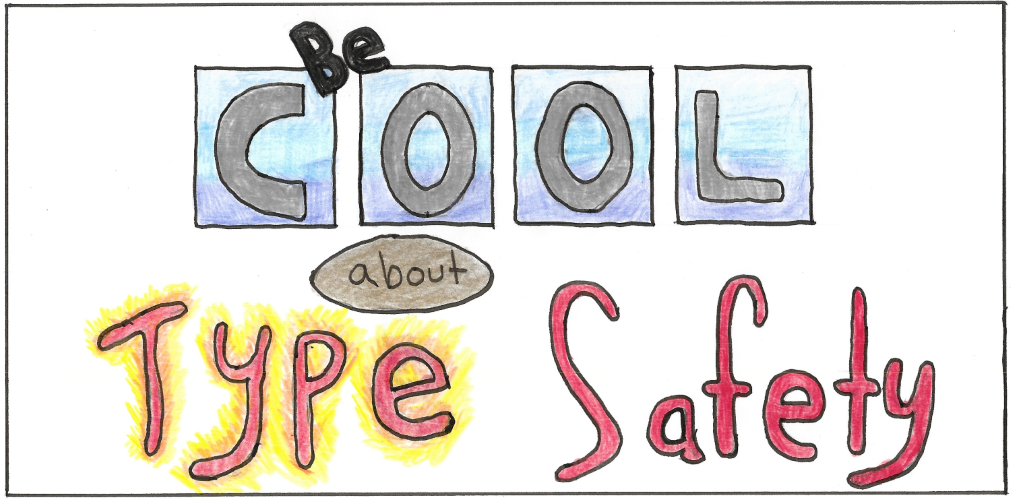 Be
COOL
about
Type Safety